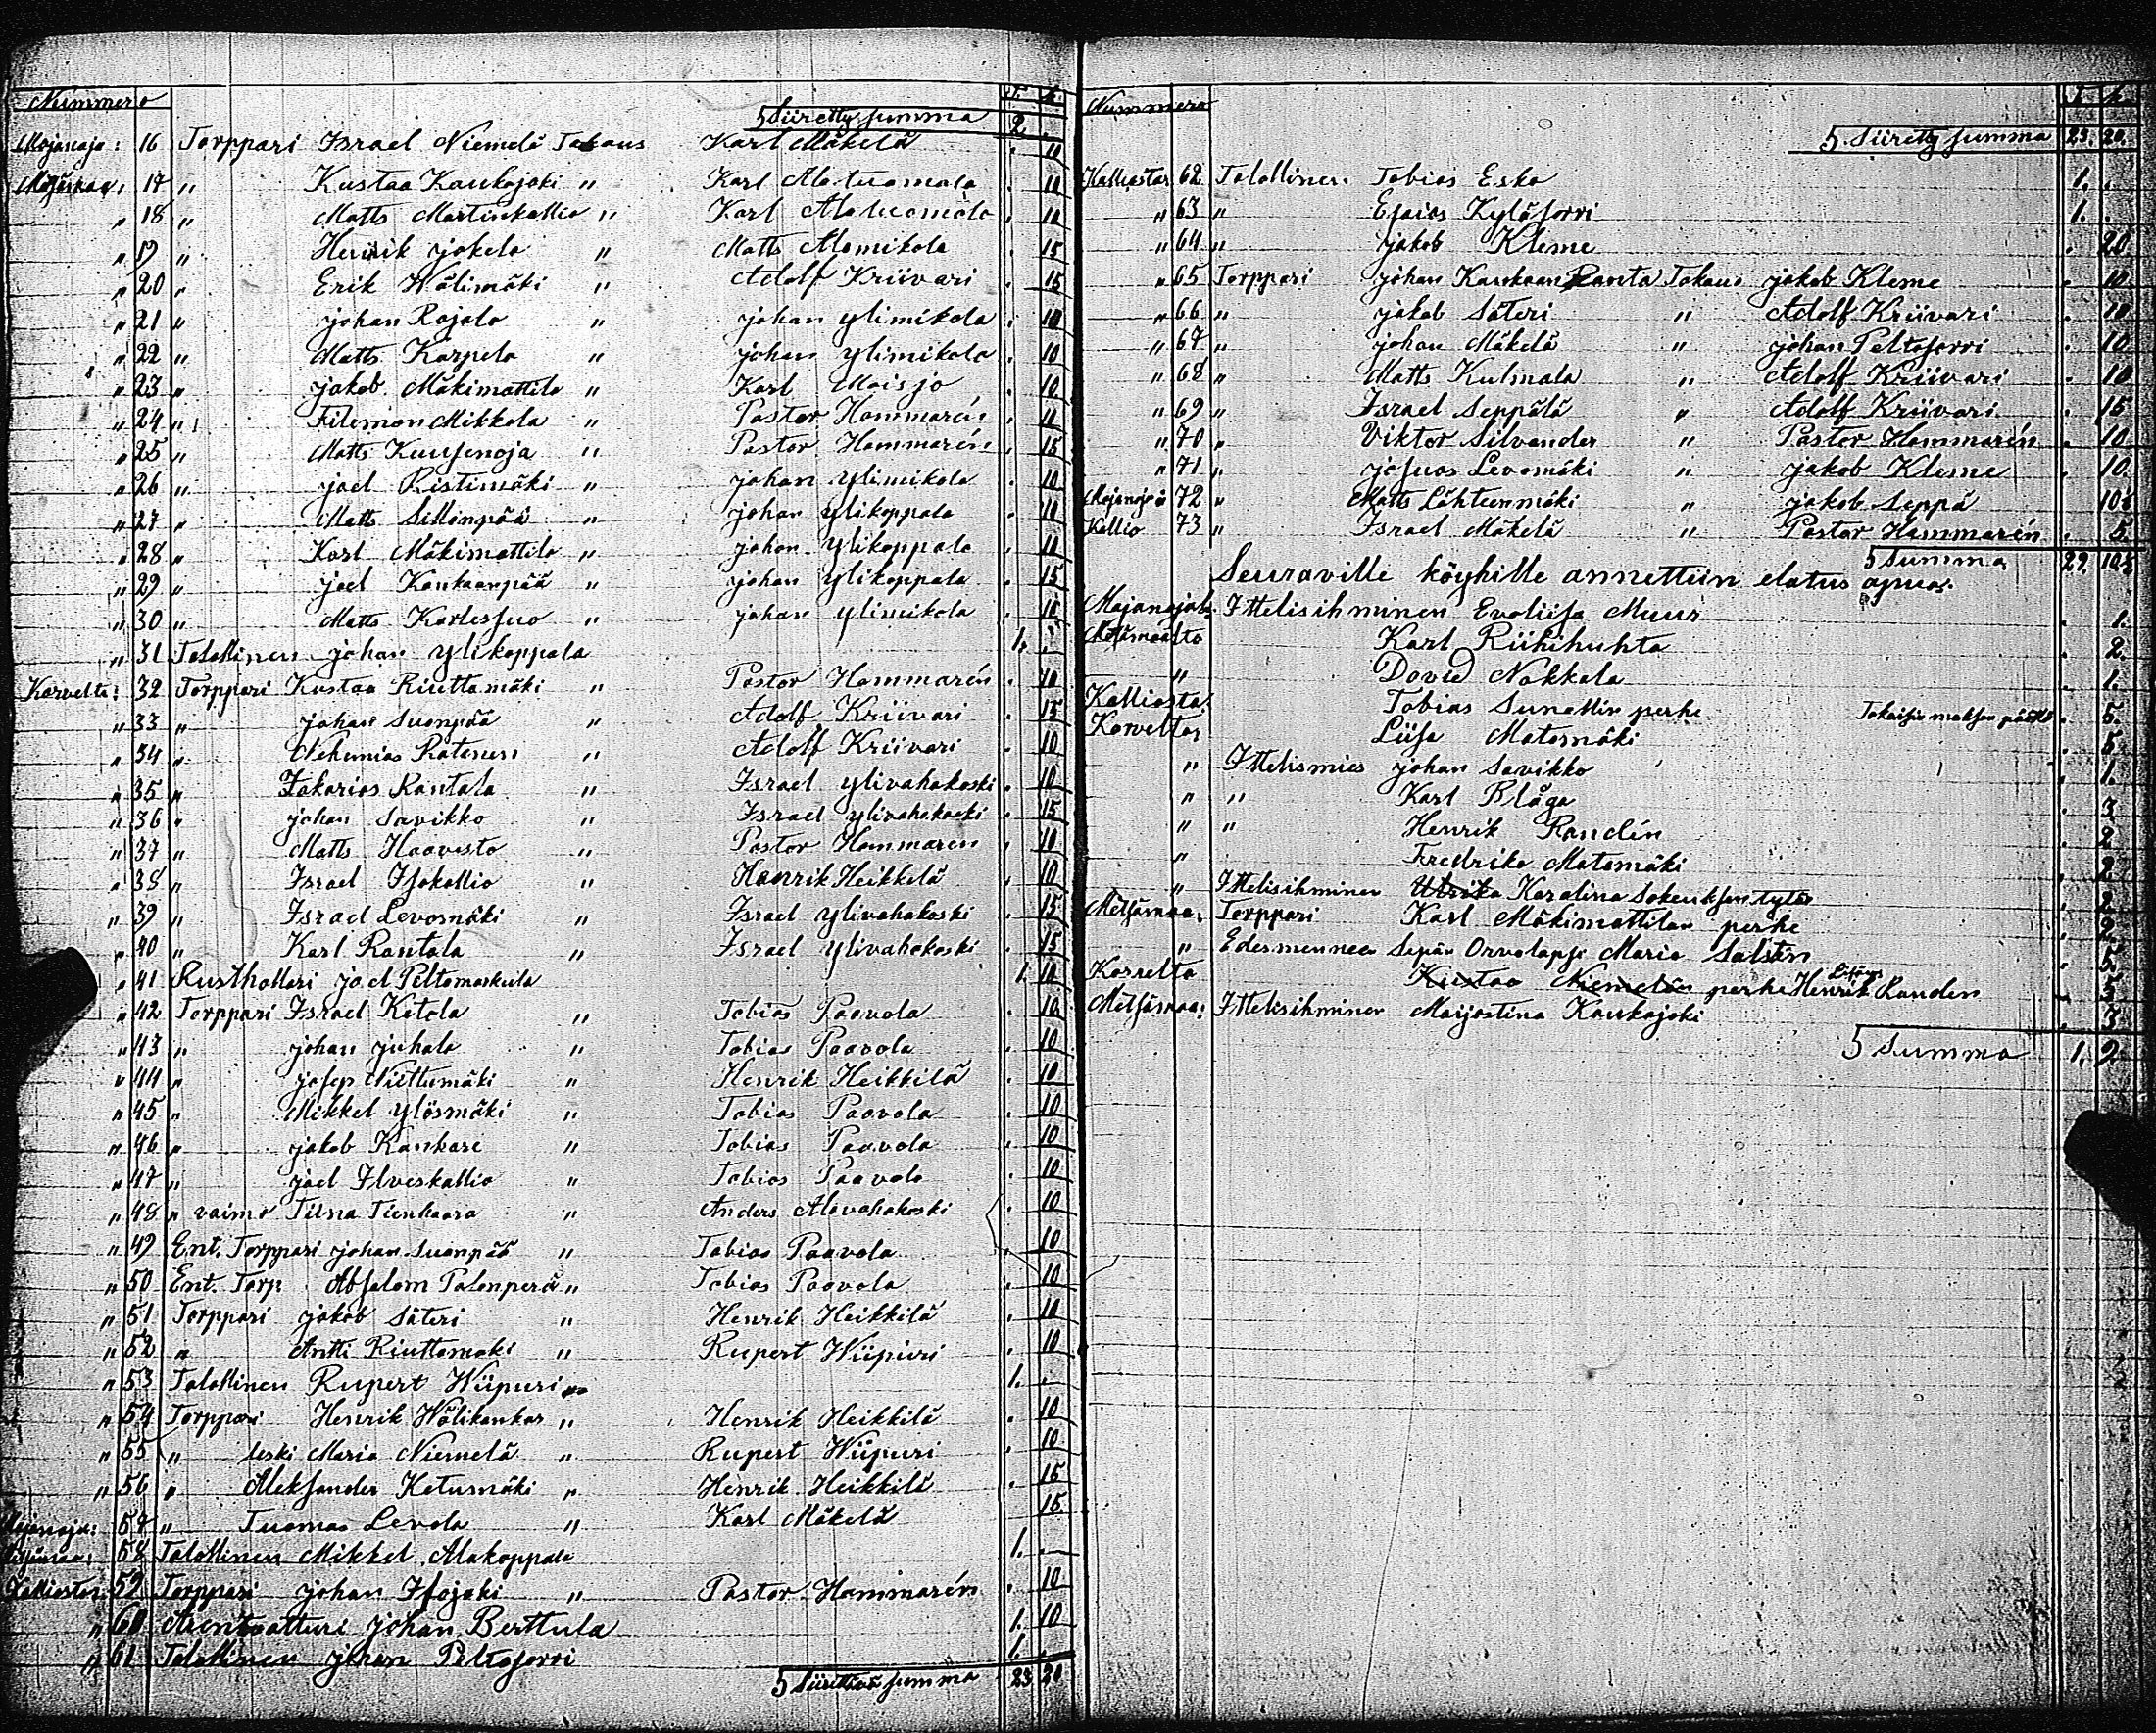 Nummero T. k.
Siiretty summa 2 .
Majanoja: 16 Torppari Israel Niemelä Takaus Karl Mäkelä . 10
Metsämaa: 17 " Kustaa Kaukajoki " Karl Alatuomala . 10
" 18 " Matts Martinkallio " Karl Alatuomola . 10
" 19 " Henrik jokela " Matts Alomikola . 15
" 20 " Erik Wälimäki " Adolf Kriivari . 15
" 21 " johan Rajala " johan ylimikola . 10
" 22 " Matts Karpela " johan ylimikola . 10
" 23 " jakob Mäkimattila " Karl Maisjo . 10
" 24 " Filemon Mikkola " Pastor Hammarén . 10
" 25 " Matts Kuusenoja " Pastor Hammarén . 15
" 26 " joel Ristimäki " johan ylimikola . 10
" 27 " Matts Sillonpää " johan ylikoppala . 10
" 28 " Karl Mäkimattila " johan ylikoppala . 10
" 29 " joel Kankaanpää " johan ylikoppala . 15
" 30 " Matts Karlessuo " johan ylimikola . 10
" 31 Talollinen johan ylikoppala 1. .
Karvelta: 32 Torppari Kustaa Riuttamäki " Pastor Hammarén . 10
" 33 " johan Suonpää " Adolf Kriivari . 15
" 34 " Nehemias Ratanen " Adolf Kriivari . 10
" 35 " Zakarias Rantala " Israel ylivahakoski . 10
" 36 " johan Savikko " Israel ylivahakoski . 15
" 37 " Matts Haavisto " Pastor Hammaren . 10
" 38 " Israel Isokallio " Henrik Heikkelä . 10
" 39 " Israel Levomäki " Israel ylivahakoski . 15
" 40 " Karl Rantala " Israel ylivahakoski . 15
" 41 Rusthollari joel Peltomaskula 1. 10
" 42 Torppari Israel Ketola " Tobias Paavola . 10
" 43 " johan juhala " Tobias Paavola . 10
" 44 " josep Niittumäki " Henrik Heikkilä . 10
" 45 " Mikkel ylösmäki " Tobias Paavola . 10
" 46 " jakob Kankare " Tobias Paavola . 10
" 47 " joel Ilveskallio " Tobias Paavola . 10
" 48 " vaimo Tiina Tienhaara " Anders Alavahakoski . 10
" 49 Ent. Torppari johan Suonpää " Tobias Paavola . 10
" 50 Ent. Torp. Absalom Palonperä " Tobias Paavola . 10
" 51 Torppari jakob Säteri " Henrik Heikkilä . 10
" 52 " Antti Riuttamäki " Rupert Wiipuri . 10
" 53 Talollinen Rupert Wiipuri 1. .
" 54 Torppari Henrik Wälikankar " Henrik Heikkilä . 10
" 55 " leski Maria Niemelä " Rupert Wiipuri . 10
" 56 " Aleksander Ketusmäki " Henrik Heikkilä . 15
Majanoja: 57 " Tuomas Levola " Karl Mäkelä 15
Metsämaa: 58 Talollinen Mikkel Alakoppala 1. .
Kalliosta: 59 Torppari johan Isojoki " Pastor Hammarén . 10
" 60 Arentaatturi johan Berttula 1. 10
" 61 Talollinen johan Peltosorri 1.
Siirettävä summa 23 20
Nummero T. k.
Siiretty summa 23. 20.
Kalliosta: 62 Talollinen Tobias Esko 1. .
" 63 " Esaias Kyläsorri 1. .
" 64 " jakob Kleme . 20
" 65 Torppari johan Kankaanranta Takaus jakob Kleme . 10
" 66 " jakob Säteri " Adolf Kriivari . 10
" 67 " johan Mäkelä " johan Peltosorri . 10
" 68 " Matts Kulmala " Adolf Kriivari . 10
" 69 " Israel Seppälä " Adolf Kriivari . 15
" 70 " Viktor Silvander " Pastor Hammarén . 10
" 71 " josuas Levomäki " jakob Kleme . 10
Majanoja 72 " Matts Lähteenmäki " jakob Seppä 10½
Kallio 73 " Israel Mäkelä " Pastor Hammarén . 5
Summa 29. 10½
Seuraville köyhille annettiin elatus apua:
Majanojalt: Ittelisihminen Evaliisa Muur . 1.
Metsämaalta Karl Riihihuhta . 2.
" David Nokkala . 1.
Kalliosta: Tobias Sunellin perhe Takaisin maksun päälle . 5.
Korvelta: Liisa Matomäki . 5
" Ittelismies johan Savikko . 1.
" " Karl Blåga . 3
" " Henrik Randén . 2
" Fredrika Matomäki . 2
" Ittelisihminen Ulrika Karolina Sakeuksentytär . 2
Metsämaa: Torppari Karl Mäkimattilan perhe . 2.
" Edesmenneen Sepän Orvolapsi Maria Salstén . 5
Korvelta Kustaa Niemelän perhe Henrik Randen . 5
Metsämaa: Ittelisihminen Maijastina Kaukajoki . 3
Summa 1. 2